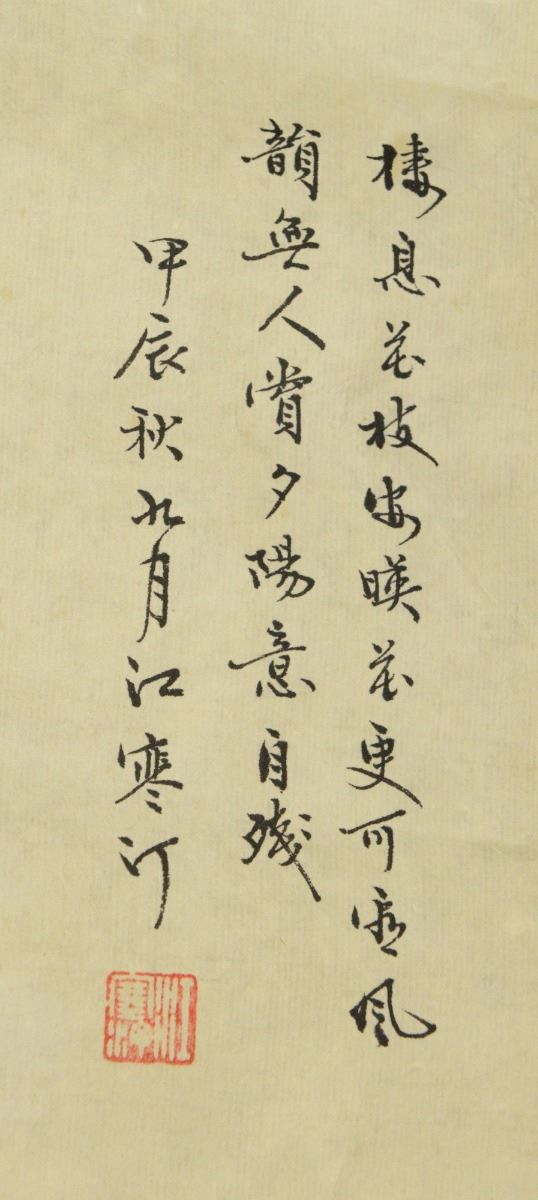 棲息花枝安暎花更可觀風
韻無人賞夕陽意自殘
甲辰秋九月江寒汀
江寒汀